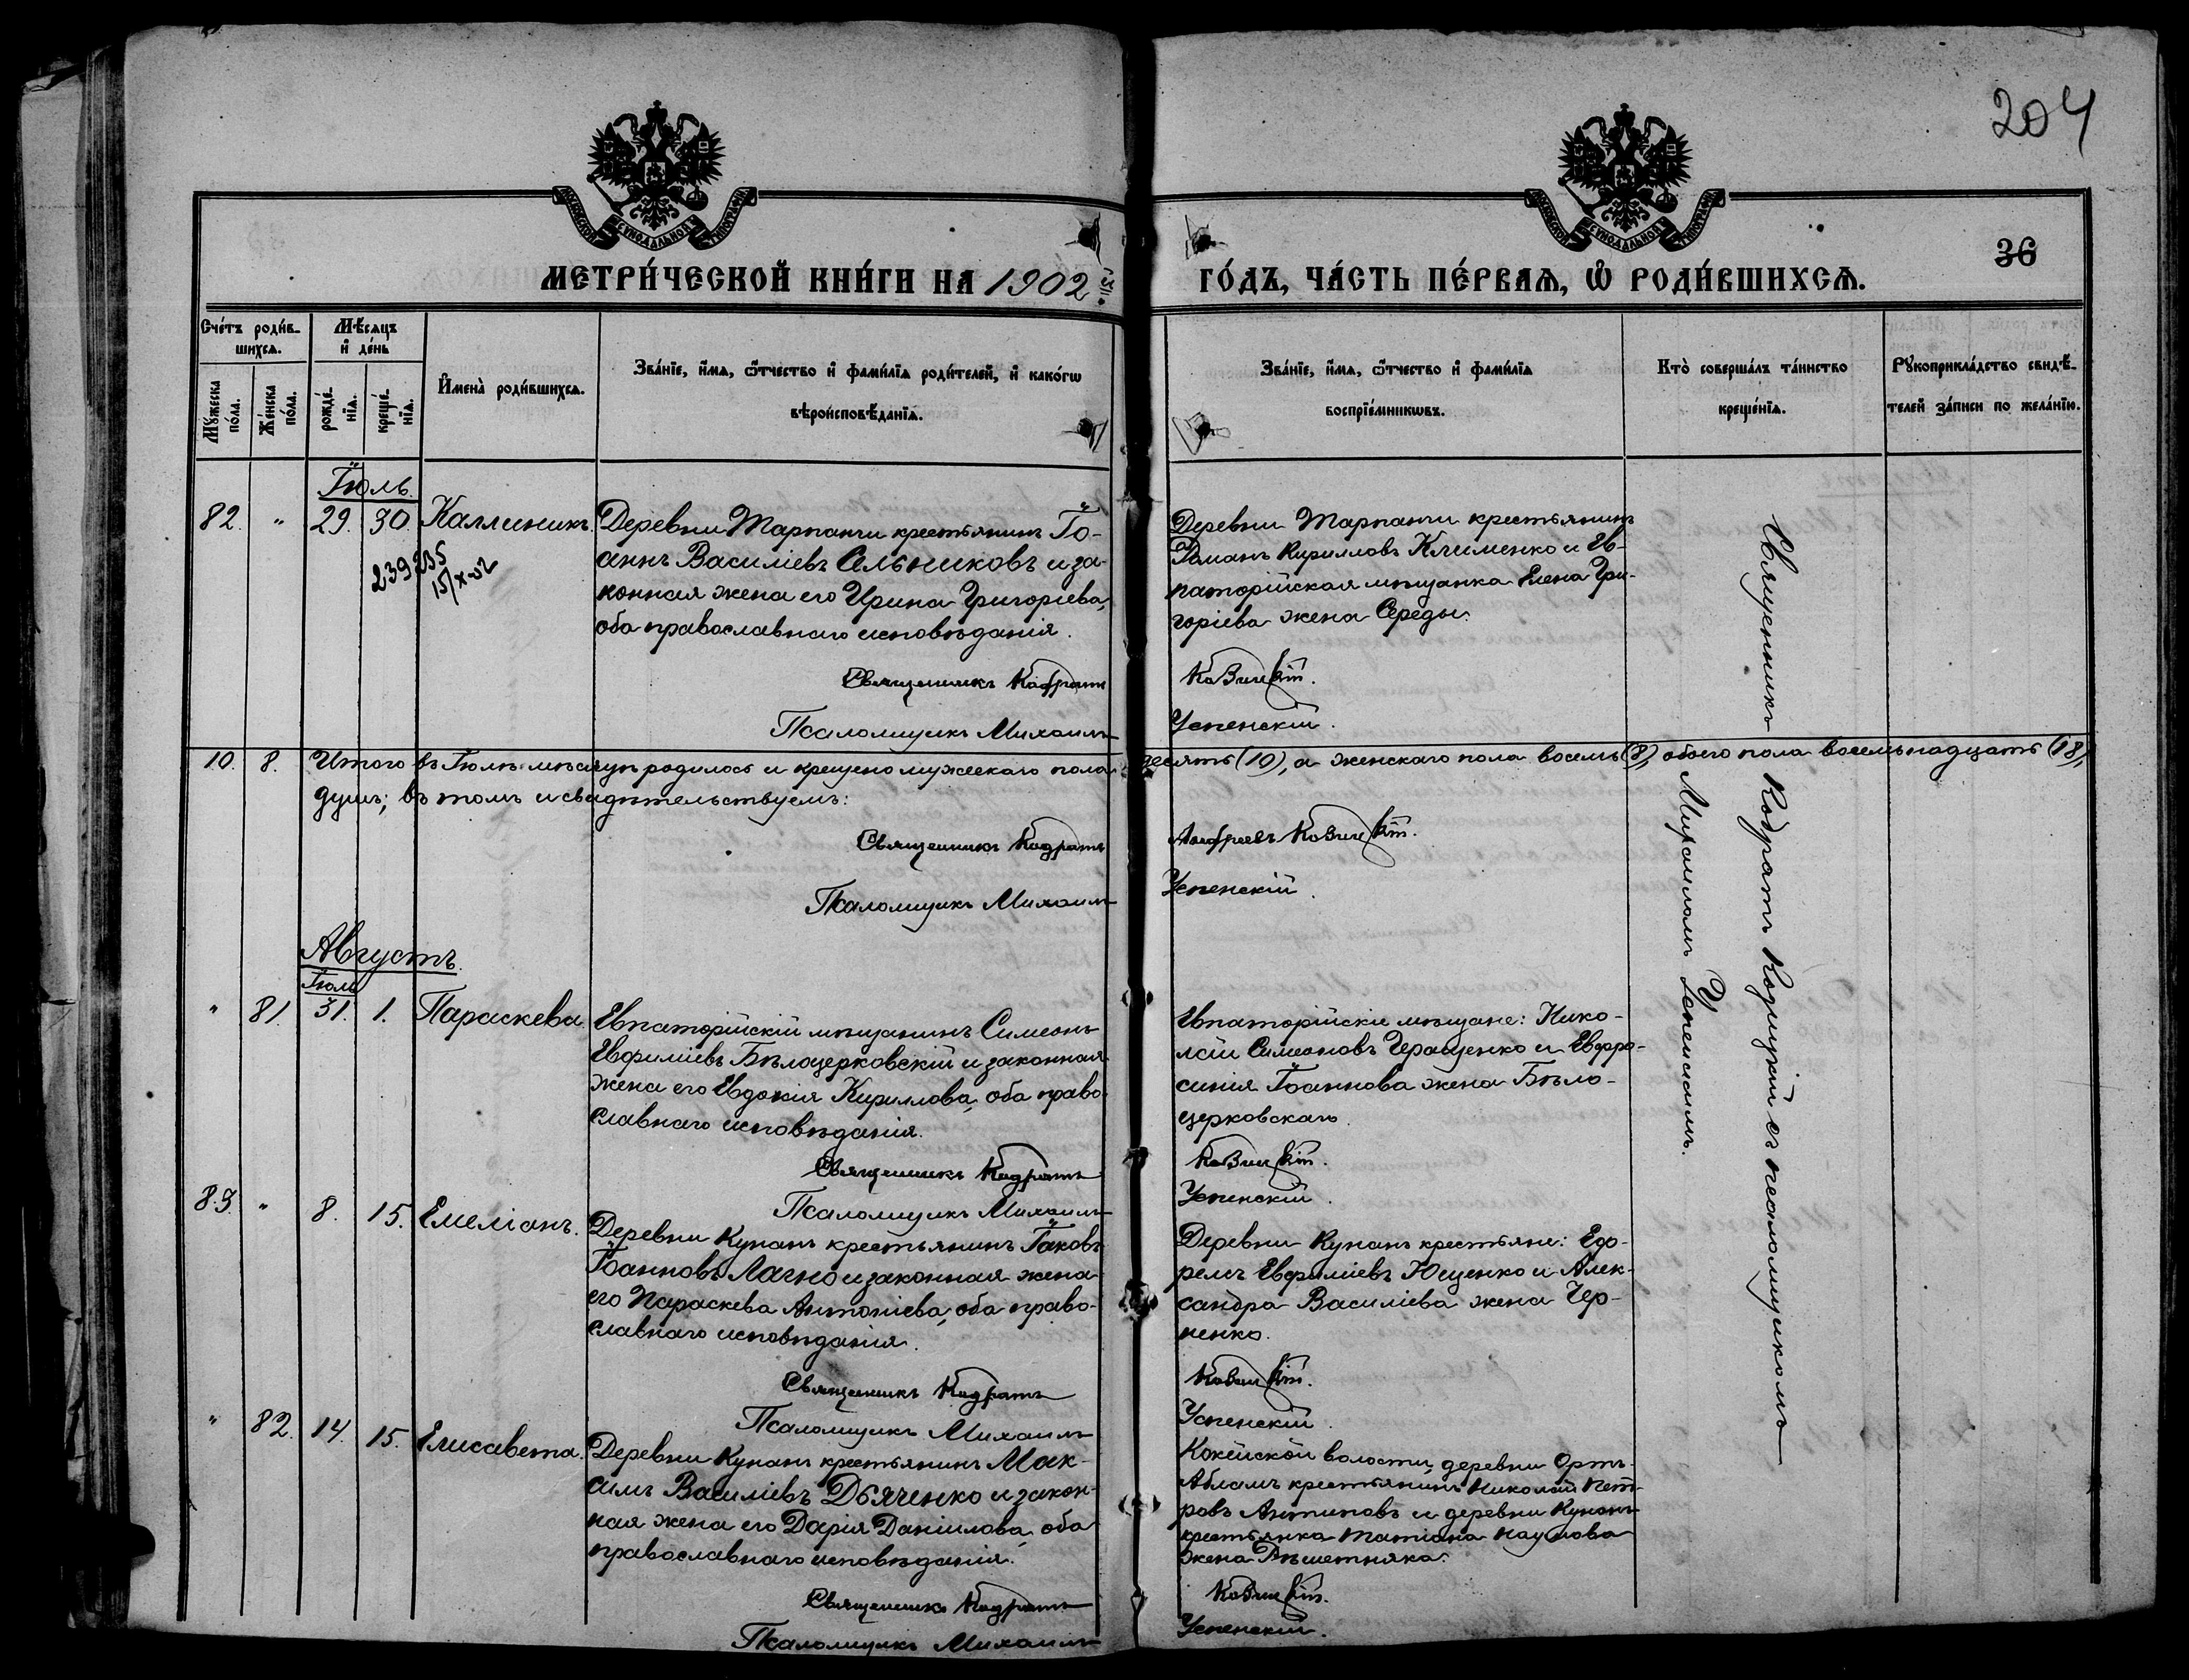 204
36
МЕТРИ́ЧЕСКОЙ КНИ́ГИ НА 1902 й
ГО́ДЪ, ЧА́СТЬ ПЕ́РВАѦ, Ѡ҆ РОДИ́ВШИХСѦ.
Сче́тъ роди́в-
шихсѧ.
Мѣ́сѧцъ
и҆ де́нь
И҆мена̀ роди́вшихсѧ.
Зва́нїе, и҆́мѧ, ѻ҆́тчество и҆ фами́лїѧ роди́телей, и҆ како́гѡ
вѣроисповѣ́данїѧ.
Мꙋ́жеска
по́ла.
Же́нска
по́ла.
рожде́-
нїѧ.
креще́-
нїѧ.
Зва́нїе, и҆́мѧ, ѻ҆́тчество и҆ фами́лїѧ
воспрїе́мникѡвъ.
Кто̀ соверша́лъ та́инство
креще́нїѧ.
Рꙋкоприкла́дство свидѣ́-
телей за́писи по жела́нїю.
Іюль.
82. " 29. 30. Каллиникъ.
239235
15/X-52
Деревни Тарпанчи крестьянинъ Іо-
аннъ Василіевъ Сальниковъ и за-
конная жена его Ирина Григоріева,
оба православнаго исповѣданія.
Священникъ Кодратъ
Псаломщикъ Михаилъ
Деревни Тарпанчи крестьянинъ
Романъ Кирилловъ Клименко и Ев-
паторійская мѣщанка Елена Гри-
горіева жена Середы.
Успенскій.
10. 8. Итого въ Іюлѣ мѣсяцѣ родилось и крещено мужескаго пола десять (10), а женскаго пола восемь (8), обоего пола восемьнадцать (18),
душъ; въ томъ и свидѣтельствуемъ:
Священникъ Кодратъ
Псаломщикъ Михаилъ
Успенскій.
Августъ.
Іюля
" 81. 31. 1. Параскева.
Евпаторійскій мѣщанинъ Симеонъ
Евфиміевъ Бѣлоцерковскій и законная
жена его Евдокія Кириллова, оба право-
славнаго исповѣданія.
Священникъ Кодратъ
Псаломщикъ Михаилъ
Евпаторійскіе мѣщане: Нико-
лай Симеоновъ Геращенко и Евфро-
синія Іоаннова жена Бѣло-
церковскаго.
Успенскій.
83. " 8. 15. Емеліанъ.
Деревни Кунанъ крестьянинъ Іаковъ
Іоанновъ Лагно и законная жена
его Параскева Антоніева, оба право-
славнаго исповѣданія.
Священникъ Кодратъ
Псаломщикъ Михаилъ
Деревни Кунанъ крестьяне: Еф-
ремъ Евфиміевъ Ющенко и Алек-
сандра Василіева жена Чер-
ненко.
Успенскій.
" 82. 14. 15. Елисавета.
Деревни Кунанъ крестьянинъ Мак-
симъ Василіевъ Дьяченко и закон-
ная жена его Дарія Даніилова, оба
православнаго исповѣданія.
Священникъ Кодратъ
Псаломщикъ Михаилъ
волости, деревни Ортъ-
Абламъ крестьянинъ Николай Пет-
ровъ Антиповъ и деревни Кунанъ
крестьянка Татіана Наумова
жена Рѣшетняка.
Успенскій.
Священникъ Кодратъ
съ псаломщикомъ
Михаиломъ Успенскимъ.